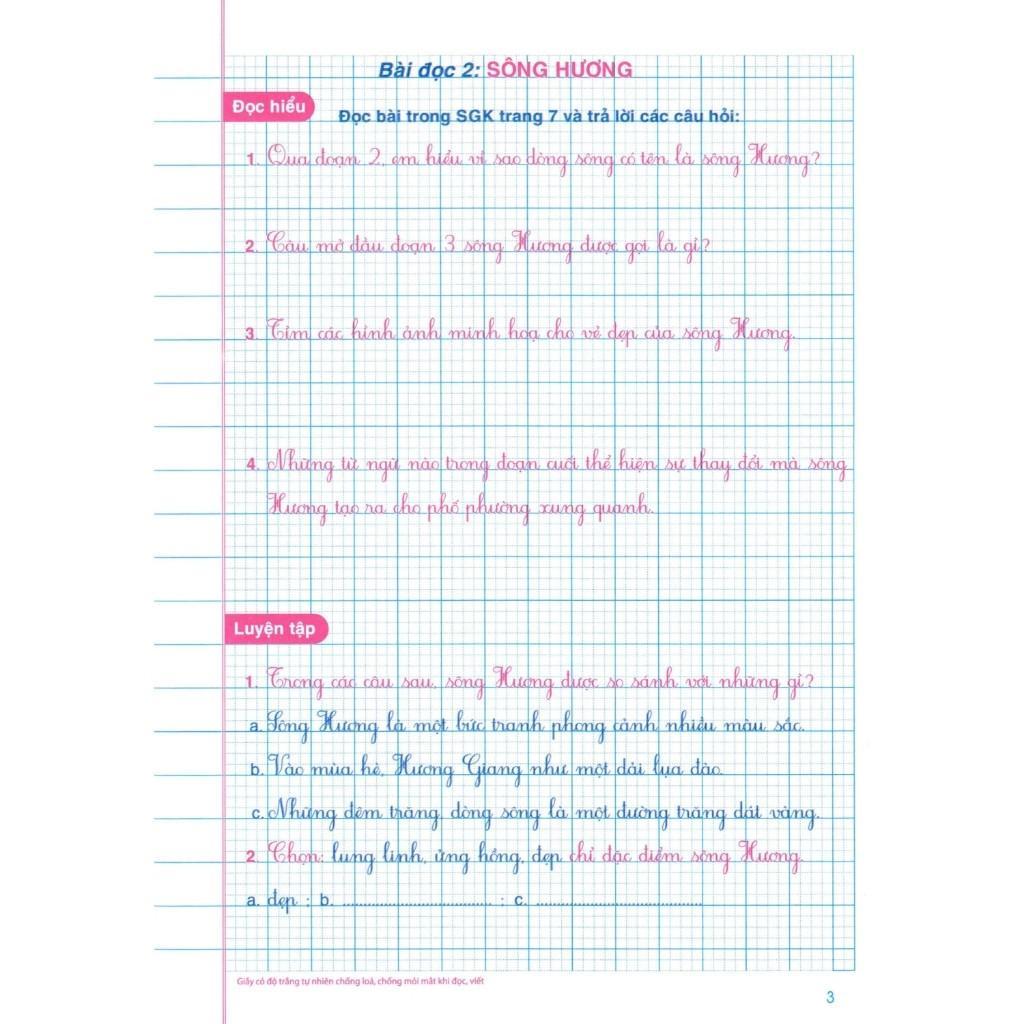 Bài đọc 2: SÔNG HƯƠNG
Đọc hiểu
Đọc bài trong SGK trang 7 và trả lời các câu hỏi:
1. Qua đoạn 2, em hiểu vì sao dòng sông có tên là sông Hương?
2. Câu mở đầu đoạn 3 sông Hương được gọi là gì?
3. Tìm các hình ảnh minh hoạ cho vẻ đẹp của sông Hương.
4. Những từ ngữ nào trong đoạn cuối thể hiện sự thay đổi mà sông
Hương tạo ra cho phố phường xung quanh.
Luyện tập
1. Trong các câu sau, sông Hương được so sánh với những gì?
a. Sông Hương là một bức tranh phong cảnh nhiều màu sắc.
b. Vào mùa hè, Hương Giang như một dải lụa đào.
c. Những đêm trăng, dòng sông là một đường trăng dát vàng.
2. Chọn: lung linh, ửng hồng, đẹp chỉ đặc điểm sông Hương.
a. đẹp ; b. .................................. ; c. ......................................
Giấy có độ trắng tự nhiên chống loá, chống mỏi mắt khi đọc, viết
3